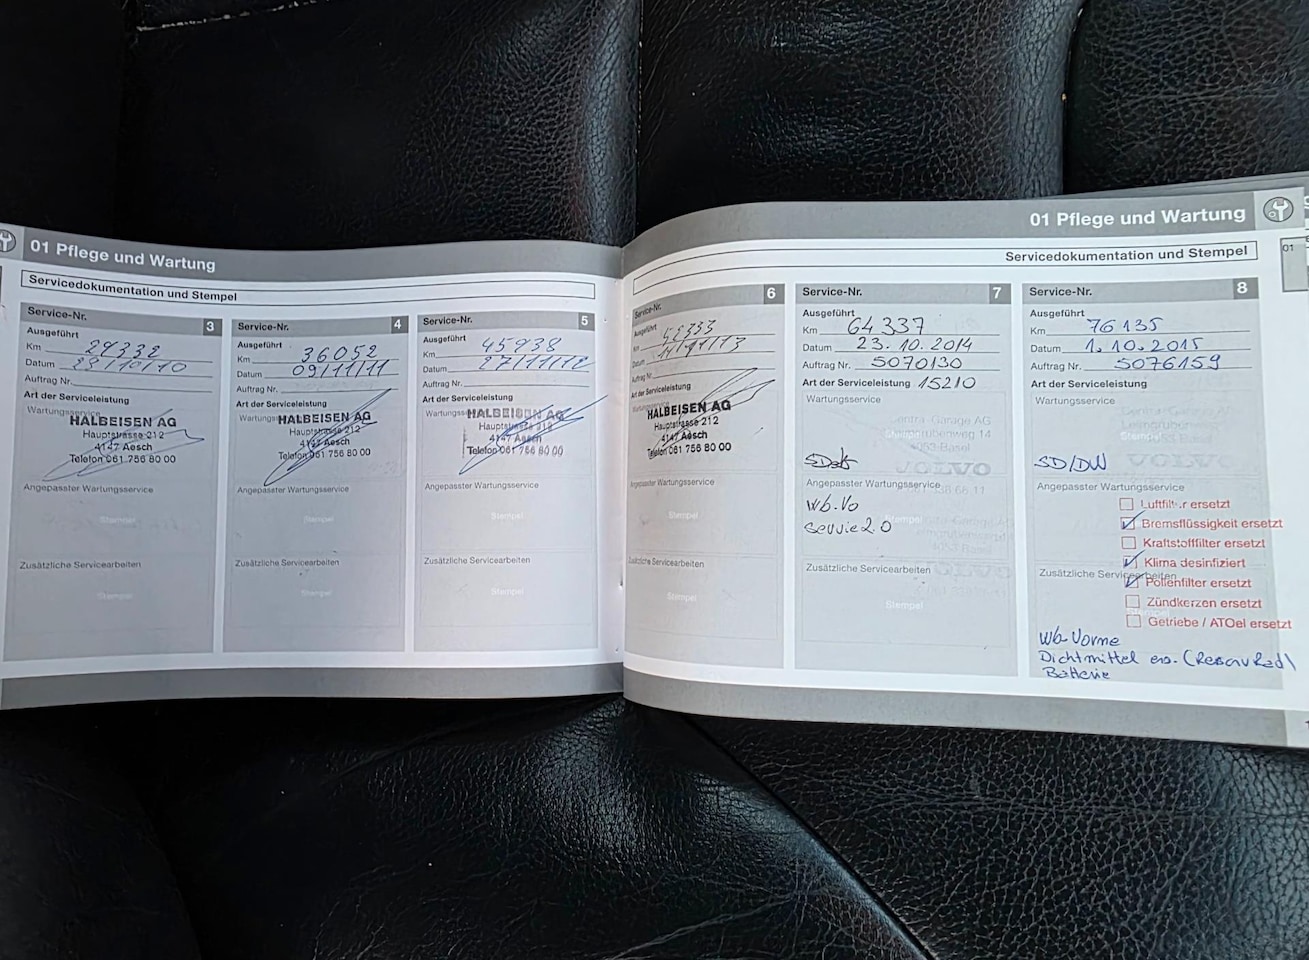 01 Pflege und Wartung
Servicedokumentation und Stempel
Service-Nr. 3
Ausgeführt
Km
Datum
Auftrag Nr.
Art der Serviceleistung
Wartungsservice
HALBEISEN AG
Hauptstrasse 212
4147 Aesch
Telefon 061 756 80 00
Angepasster Wartungsservice
Stempel
Zusätzliche Servicearbeiten
Stempel
Service-Nr. 4
Ausgeführt
Km 36052
Datum 09/11/11
Auftrag Nr.
Art der Serviceleistung
HALBEISEN AG
Hauptstrasse 212
4147 Aesch
Telefon 061 756 80 00
Angepasster Wartungsservice
Stempel
Zusätzliche Servicearbeiten
Stempel
Service-Nr. 5
Ausgeführt
Km 45938
Datum 27/11/12
Auftrag Nr.
Art der Serviceleistung
HALBEISEN AG
Hauptstrasse 212
4147 Aesch
Telefon 061 756 80 00
Angepasster Wartungsservice
Stempel
Zusätzliche Servicearbeiten
Stempel
01 Pflege und Wartung
Servicedokumentation und Stempel
01
Service-Nr. 6
Ausgeführt
Km
Datum
Auftrag Nr.
Art der Serviceleistung
HALBEISEN AG
Hauptstrasse 212
4147 Aesch
Telefon 061 756 80 00
Angepasster Wartungsservice
Stempel
Zusätzliche Servicearbeiten
Stempel
Service-Nr. 7
Ausgeführt
Km 64337
Datum 23.10.2014
Auftrag Nr. 5070130
Art der Serviceleistung 15210
Wartungsservice
VOLVO
Angepasster Wartungsservice
Wb.Vo
Stempel
Zusätzliche Servicearbeiten
Stempel
Service-Nr. 8
Ausgeführt
Km 76135
Datum 1.10.2015
Auftrag Nr. 5076159
Art der Serviceleistung
Wartungsservice
Stempel
VOLVO
SD/DW
Angepasster Wartungsservice
Luftfilter ersetzt
Bremsflüssigkeit ersetzt
Kraftstoffilter ersetzt
Klima desinfiziert
Zusätzliche Servicearbeiten
Pollenfilter ersetzt
Zündkerzen ersetzt
Getriebe / ATOel ersetzt
Wb-Vorne
Dichtmittel ers. (ReservRad)
Batterie